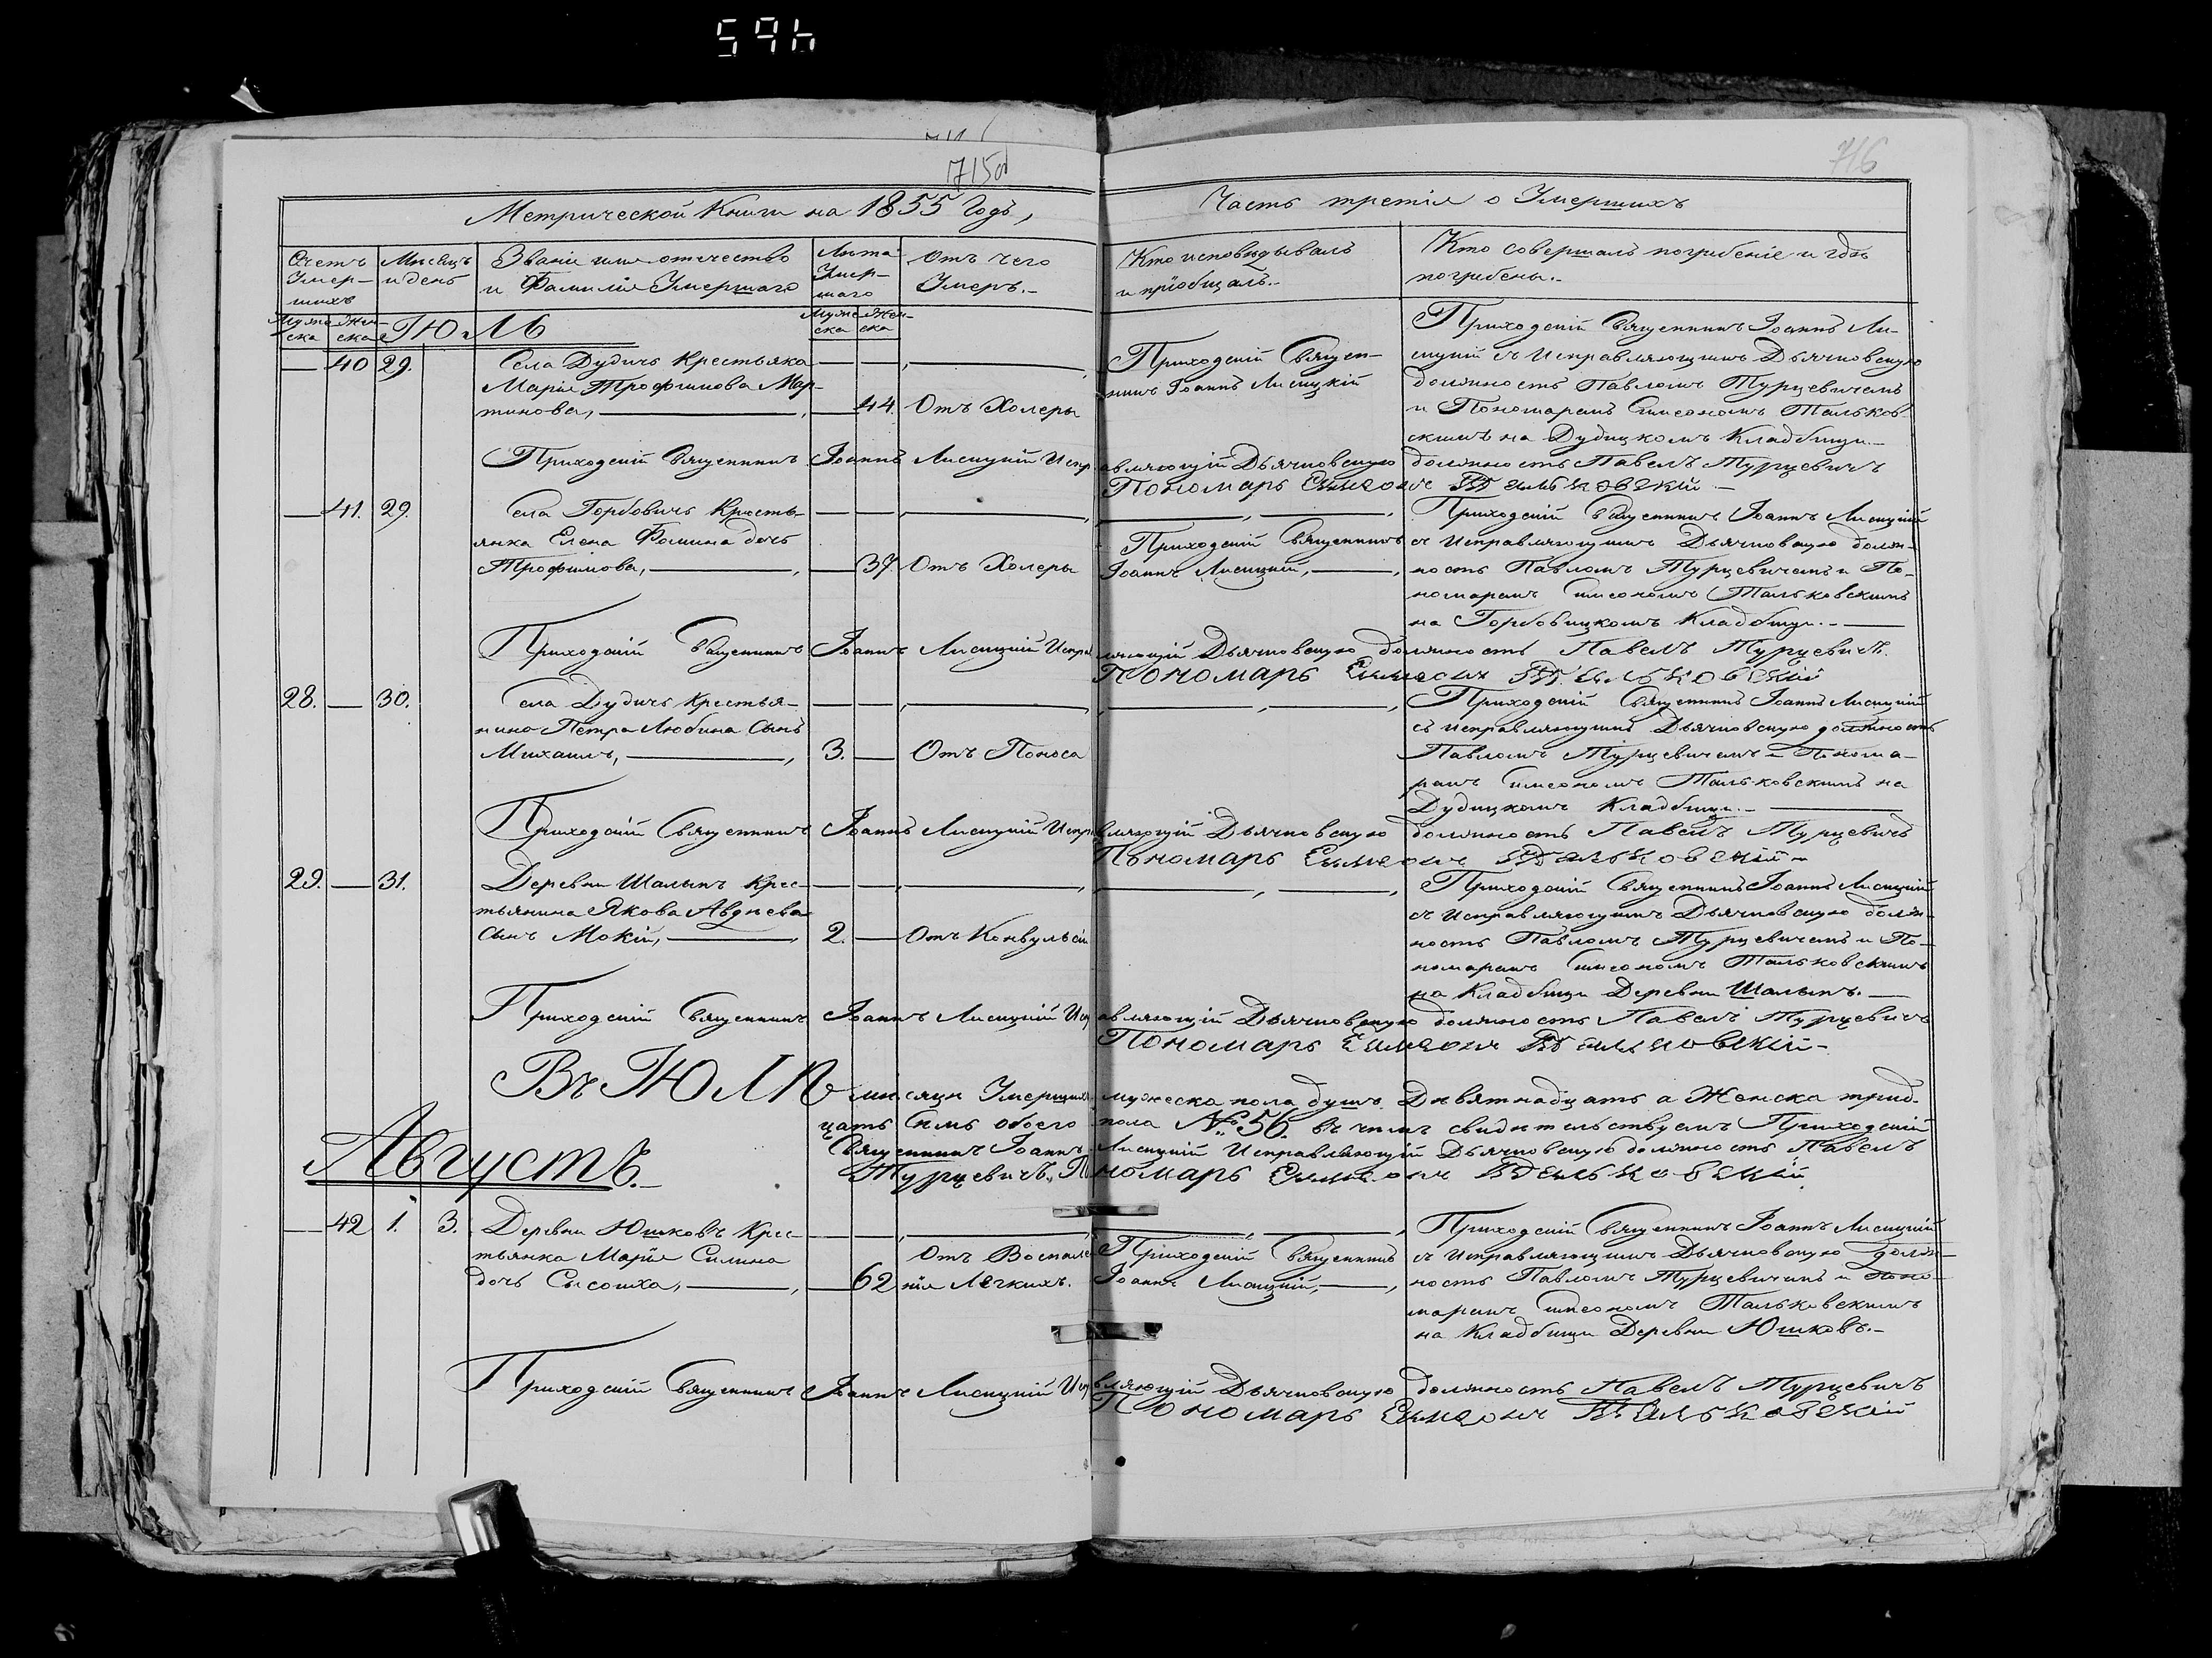 594
715об
716
Метрической Книги на 1855 Годъ,
Часть третія о Умершихъ
Счетъ Умер-шихъ
Мѣсяцъ и день
Званіе имя отечество и Фамилія Умершаго
Лѣта Умер-шаго
Отъ чего Умеръ.-
Кто исповѣдывалъ и пріобщалъ.-
Кто совершалъ погребеніе и гдѣ погребены.-
Муже-ска
Жен-ска
Муже-ска
Жен-ска
40 29. Села Дудичъ Крестьянка
Марія Трофимова Мар-
тинова, 44. Отъ Холеры
Приходскій Священ-
никъ Іоаннъ Лисицкій
Приходскій Священникъ Іоаннъ Ли-
сицкій съ Исправляющимъ Дьячковскую
должность Павломъ Турцевичемъ
и Пономаремъ Симеономъ Тальков-
скимъ на Дудицкомъ Кладбищи.-
Приходскій Священникъ Іоаннъ Лисицкій Исправляющій Дьячковскую должность Павелъ Турцевичъ
Пономарь Симеонъ Тальковскій
41. 29. Села Горбовичъ Кресть-
янка Елена Фомина дочь
Трофимова, 37. Отъ Холеры
Приходскій Священникъ
Іоаннъ Лисицкій,
Приходскій Священникъ Іоаннъ Лисицкій
съ Исправляющимъ Дьячковскую долж-
ность Павломъ Турцевичемъ и По-
номаремъ Симеономъ Тальковскимъ
на Горбовицкомъ Кладбищи.-
Приходскій Священникъ Іоаннъ Лисицкій Исправляющій Дьячковскую должность Павелъ Турцевичъ.
Пономарь Симеонъ Тальковскій
28. 30. Села Дудичъ Крестья-
нина Петра Любина Сынъ
Михаилъ, 3. Отъ Поноса
Приходскій Священникъ Іоаннъ Лисицкій
съ исправляющимъ Дьячковскую должность
Павломъ Турцевичемъ и Понома-
ремъ Симеономъ Тальковскимъ на
Дудицкомъ Кладбищи.-
Приходскій Священникъ Іоаннъ Лисицкій Исправляющій Дьячковскую должность Павелъ Турцевичъ
Пономарь Симеонъ Тальковскій
29. 31. Деревни Шалыпъ Крес-
тьянина Якова Авдѣева
Сынъ Мокій, 2. Отъ Конвульсіи
Приходскій Священникъ Іоаннъ Лисицкій
съ Исправляющимъ Дьячковскую долж-
ность Павломъ Турцевичемъ и По-
номаремъ Симеономъ Тальковскимъ
на Кладбищи Деревни Шалыпъ.
Приходскій Священникъ Іоаннъ Лисицкій Исправляющій Дьячковскую должность Павелъ Турцевичъ
Пономарь Симеонъ Тальковскій
Въ ІЮЛѢ мѣсяцѣ Умершихъ мужеска пола душъ Девятнадцать а Женска трид-
цать Семь обоего пола №56. въ чемъ свидѣтельствуемъ Приходскій
Священникъ Іоаннъ Лисицкій Исправляющій Дьячковскую должность Павелъ
Турцевичъ. Пономарь Симеонъ Тальковскій
Августъ.
42 1. 3. Деревни Юшковъ Крес-
тьянка Марія Силина
дочь Сысоиха, 62 Отъ Воспале-
нія Легкихъ.
Приходскій Священникъ
Іоаннъ Лисицкій,
Приходскій Священникъ Іоаннъ Лисицкій
съ Исправляющимъ Дьячковскую долж-
ность Павломъ Турцевичемъ и Поно-
маремъ Симеономъ Тальковскимъ
на Кладбищи Деревни Юшковъ.-
Приходскій Священникъ Іоаннъ Лисицкій Исправляющій Дьячковскую должность Павелъ Турцевичъ
Пономарь Симеонъ Тальковскій